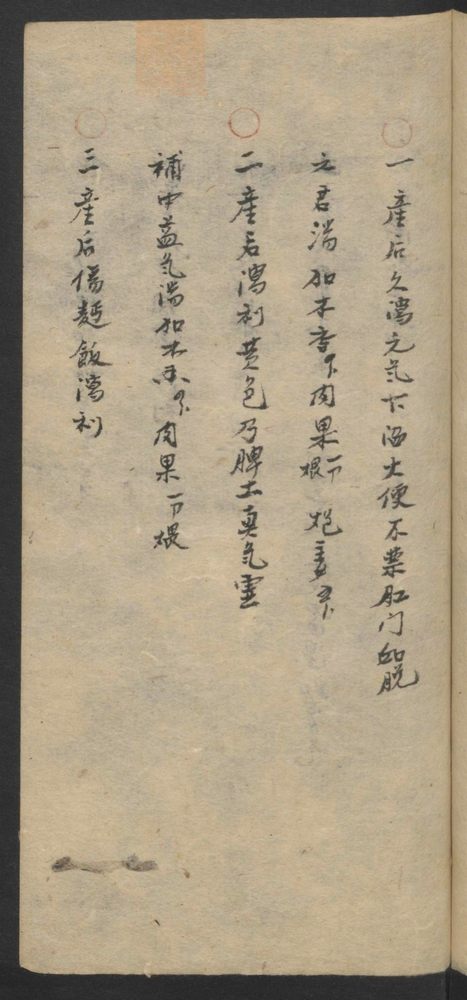 一產后久瀉元气下陷大便不禁肛门如脱
六君湯加木香下肉果一ㄗ煨 炮姜五卜
二產后瀉利黄色乃脾土真气虚
補中益气湯加木香下肉果一ㄗ煨
三產后傷麺飯瀉利